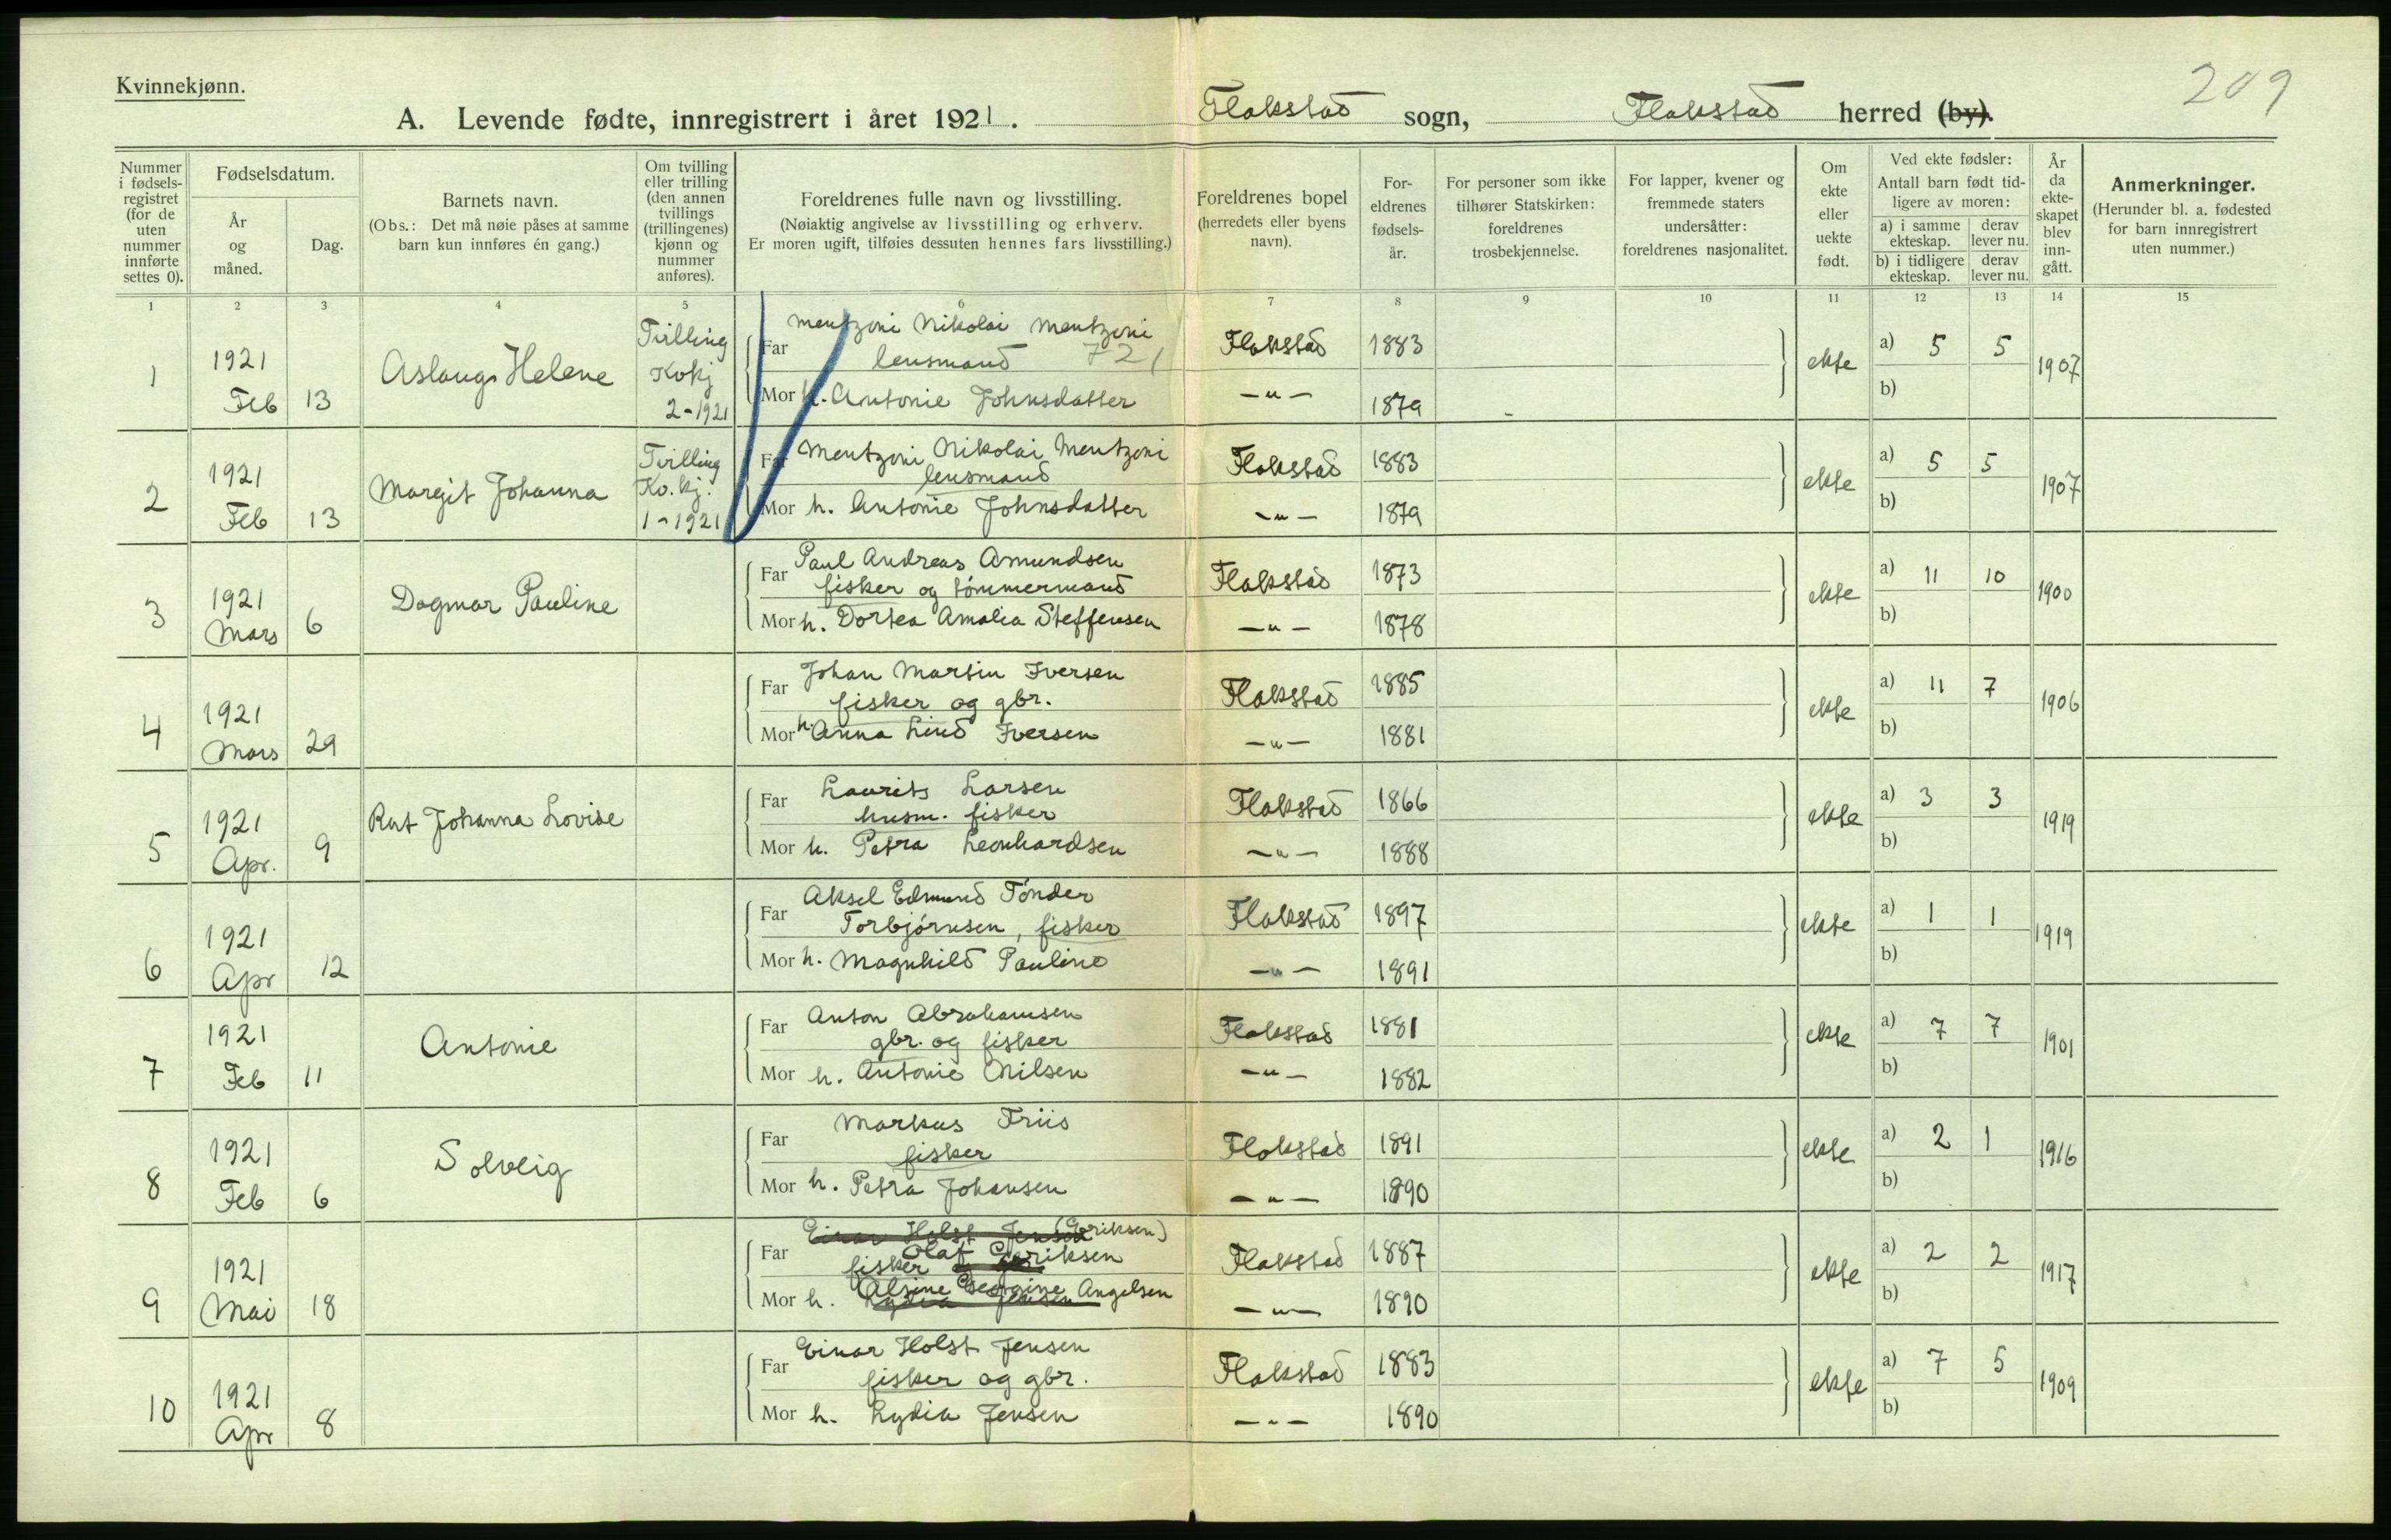 Kvinnekjønn.
209
A. Levende fødte, innregistrert i året 1921. Flakstad sogn, Flakstad herred (by).
Nummer i fødsels-registret (for de uten nummer innførte settes 0).
Fødselsdatum.
År og måned.
Dag.
Barnets navn.
(Obs.: Det må nøie påses at samme barn kun innføres én gang.)
Om tvilling eller trilling (den annen tvillings (trillingenes) kjønn og nummer anføres).
Foreldrenes fulle navn og livsstilling.
(Nøiaktig angivelse av livsstilling og erhverv.
Er moren ugift, tilføies dessuten hennes fars livsstilling.)
Foreldrenes bopel
(herredets eller byens navn).
For-eldrenes fødsels-år.
For personer som ikke tilhører Statskirken: foreldrenes trosbekjennelse.
For lapper, kvener og fremmede staters undersåtter: foreldrenes nasjonalitet.
Om ekte eller uekte født.
Ved ekte fødsler:
Antall barn født tid-ligere av moren:
a) i samme ekteskap. derav lever nu.
b) i tidligere ekteskap. derav lever nu.
År da ekte-skapet blev inn-gått.
Anmerkninger.
(Herunder bl. a. fødested for barn innregistrert uten nummer.)
1 2 3 4 5 6 7 8 9 10 11 12 13 14 15
1 1921 Feb 13 Aslaug Helene Tvilling Kvkj 2-1921
Far Mentzoni Nikolai Mentzoni Flakstad 1883
lensmand 721
Mor h. Antonie Johnsdatter -"- 1879
ekte a) 5 5 b) 1907
2 1921 Feb 13 Margit Johanna Tvilling Kv.kj. 1-1921
Far Mentzoni Nikolai Mentzoni Flakstad 1883
lensmand
Mor h. Antonie Johnsdatter -"- 1879
ekte a) 5 5 b) 1907
3 1921 Mars 6 Dagmar Pauline
Far Paul Andreas Amundsen Flakstad 1873
fisker og tømmermand
Mor h. Dortea Amalia Steffensen -"- 1878
ekte a) 11 10 b) 1900
4 1921 Mars 29
Far Johan Martin Iversen Flakstad 1885
fisker og gbr.
Mor h. Anna Lind Iversen -"- 1881
ekte a) 11 7 b) 1906
5 1921 Apr. 9 Rut Johanna Lovise
Far Laurits Larsen Flakstad 1866
husm. fisker
Mor h. Petra Leonhardsen -"- 1888
ekte a) 3 3 b) 1919
6 1921 Apr 12
Far Aksel Edmund Tønder Flakstad 1897
Torbjørnsen, fisker
Mor h. Magnhild Pauline -"- 1891
ekte a) 1 1 b) 1919
7 1921 Feb 11 Antonie
Far Anton Abrahamsen Flakstad 1881
gbr. og fisker
Mor h. Antonie Nilsen -"- 1882
ekte a) 7 7 b) 1901
8 1921 Feb 6 Solveig
Far Markus Friis Flakstad 1891
fisker
Mor h. Petra Johansen -"- 1890
ekte a) 2 1 b) 1916
9 1921 Mai 18
Einar Holst Jensen (Eriksen)
Far Olaf Eriksen Flakstad 1887
fisker og gbr
Alsine Georgine Angelsen
Mor h. Lydia Jensen -"- 1890
ekte a) 2 2 b) 1917
10 1921 Apr 8
Far Einar Holst Jensen Flakstad 1883
fisker og gbr.
Mor h. Lydia Jensen -"- 1890
ekte a) 7 5 b) 1909